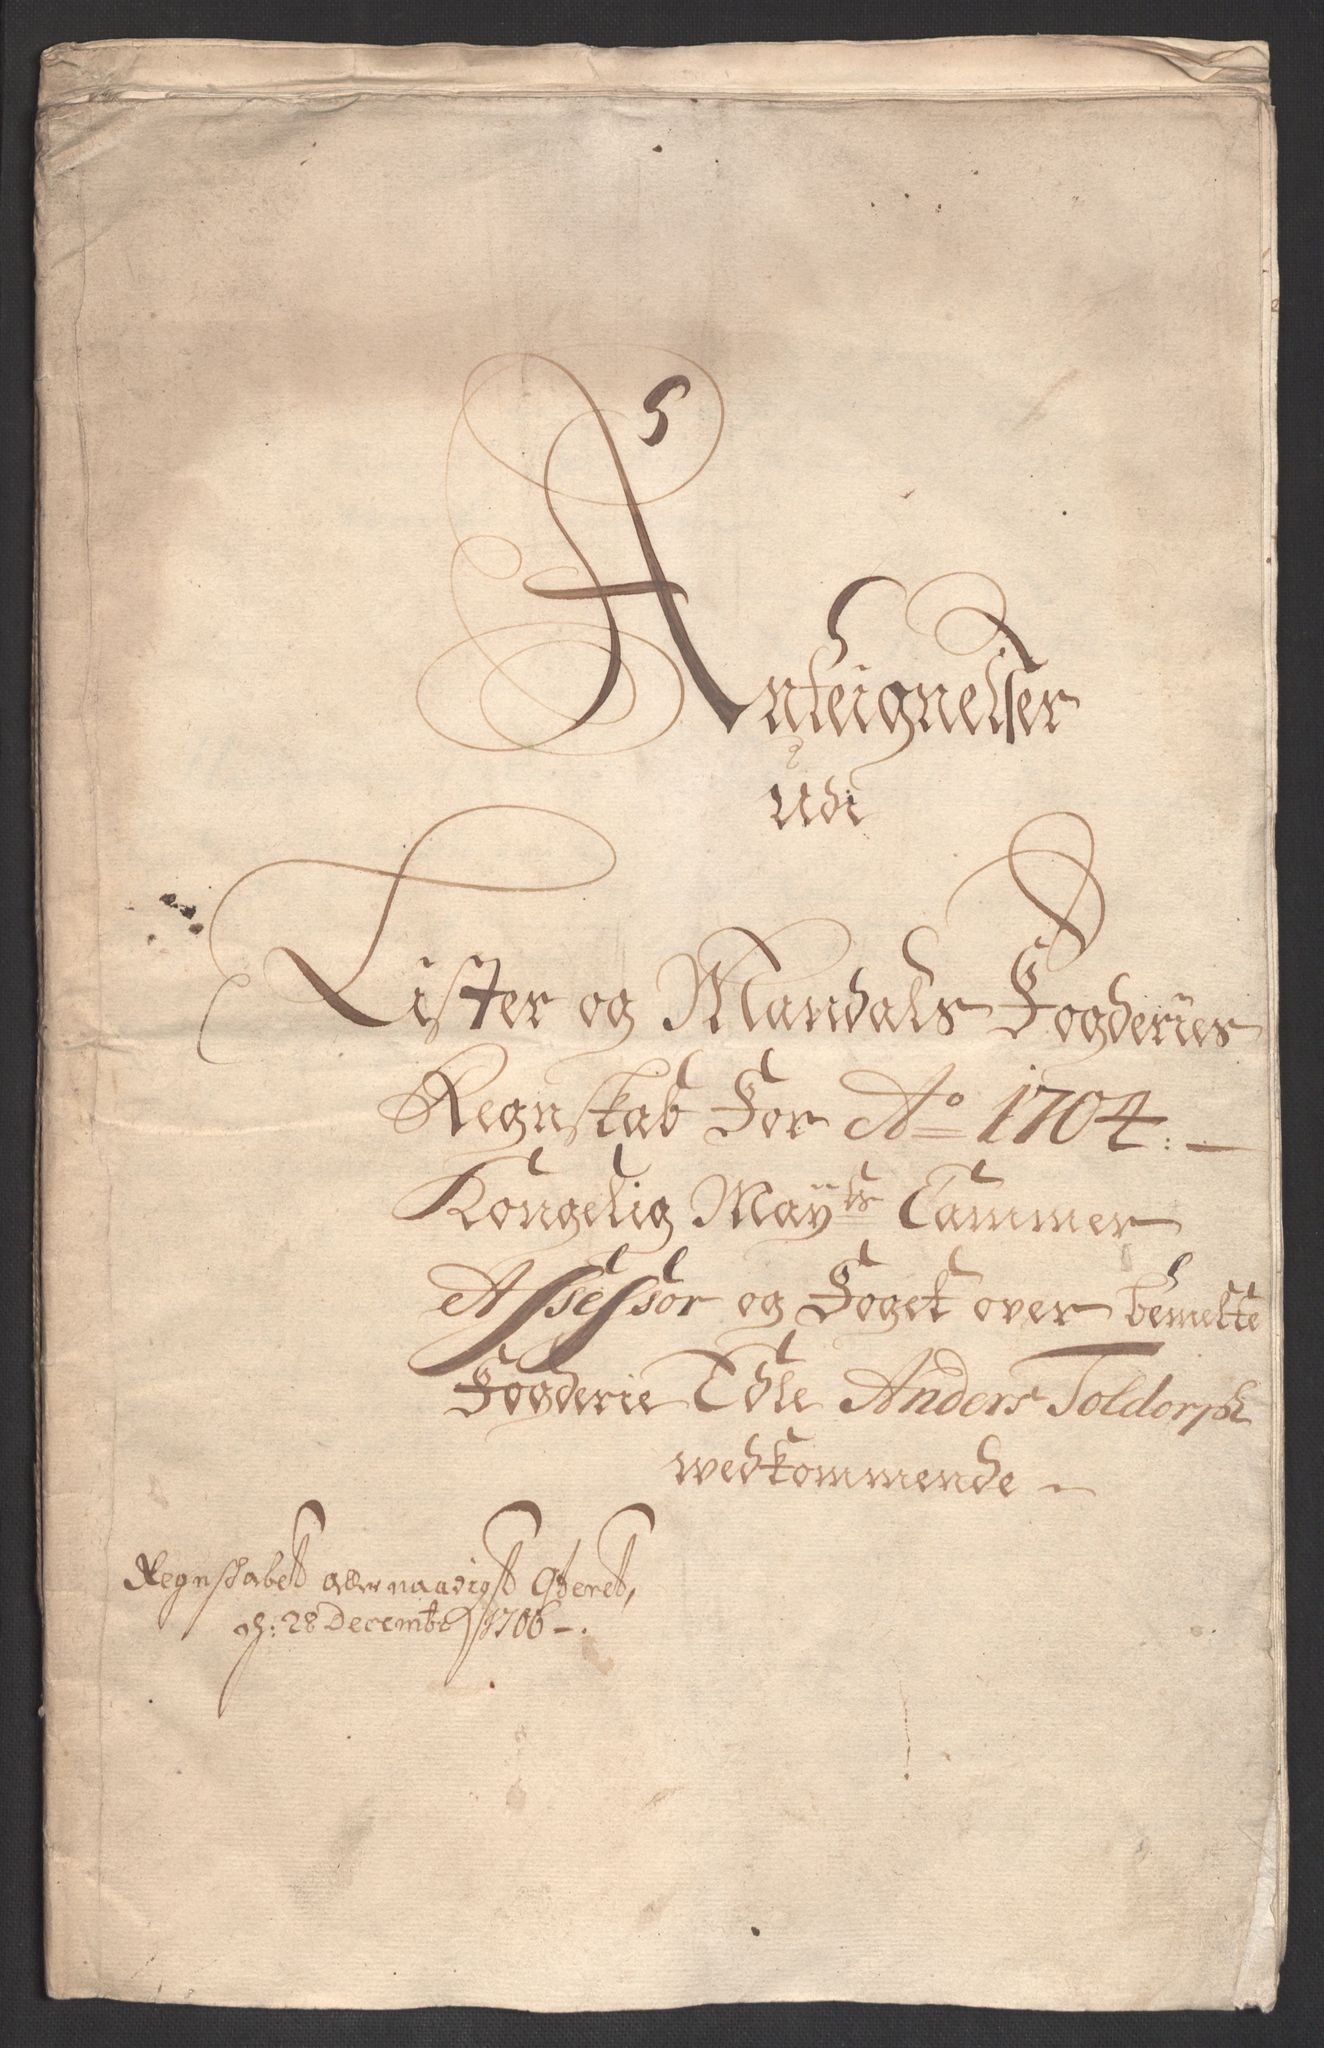 5
Anteignelser
udi
Lister og Mandals Fogderies
Regnskab For Ao 1704.
Kongelig Mayts Cammer
Assessor og Foget over bemelte
Fogderie Edle Anders Toldorph
wedkommende
Regnschabet allernaadigst
28 Decembr 1706